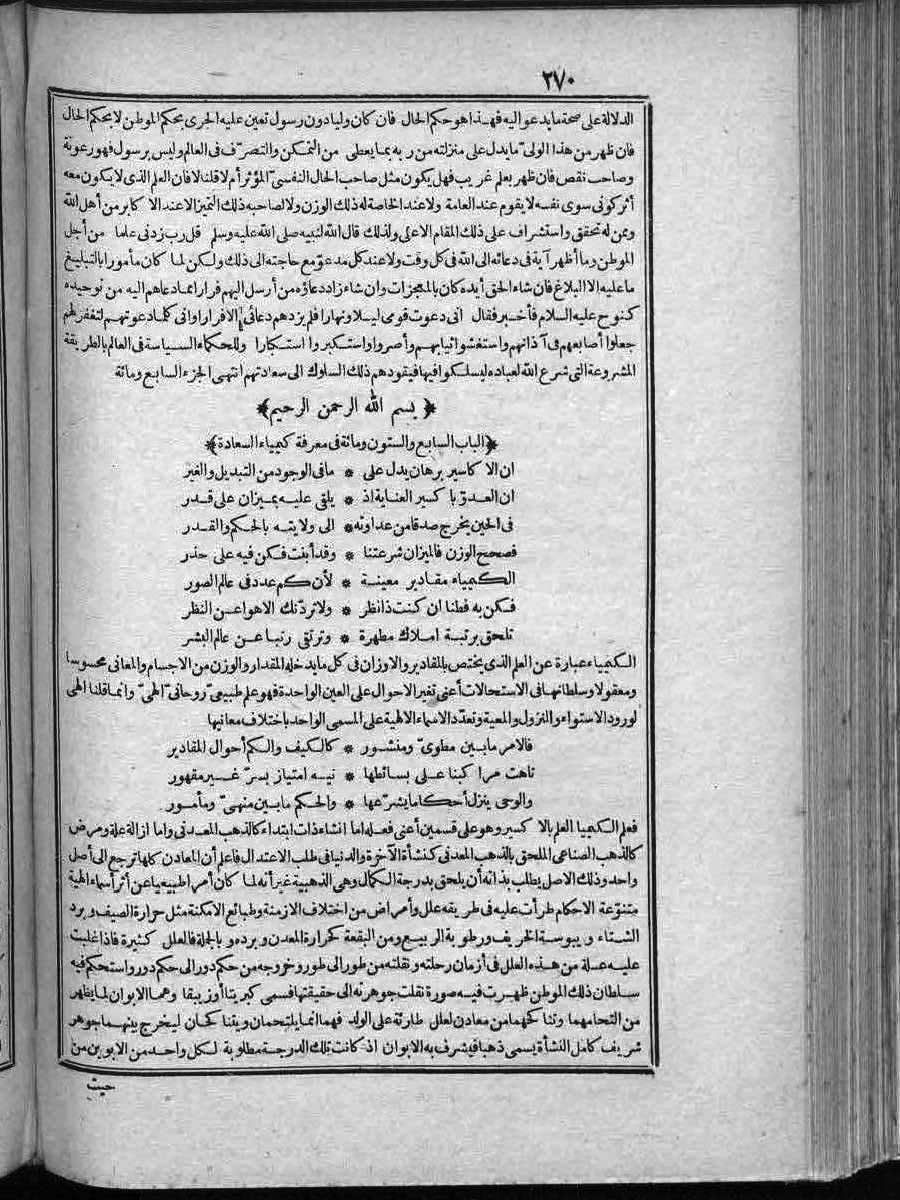 ٢٧٠
الدلالة على صحة ما يدعو اليه فهذا هو حكم الحال فان كان وليا دون رسول تعين عليه الجرى بحكم الموطن لا بحكم الحال
فان ظهر من هذا الولىّ ما يدل على منزلته من ربه بما يعطى من التمكن والتصرّف فى العالم وليس برسول فهو رعونة
وصاحب نقص فان ظهر بعلم غريب فهل يكون مثل صاحب الحال النفسىّ المؤثر أم لا قلنا لا فان العلم الذى لا يكون معه
أثر كونى سوى نفسه لا يقوم عند العامة ولا عند الخاصة له ذلك الوزن ولا لصاحبه ذلك التميز الا عند الاكابر من أهل الله
وممن له تحقق واستشراف على ذلك المقام الاعلى ولذلك قال الله لنبيه صلى الله عليه وسلم قل رب زدنى علما من أجل
الموطن وما أظهر آية فى دعائه الى الله فى كل وقت ولا عند كل مدعوّ مع حاجته الى ذلك ولكن لما كان مأمورا بالتبليغ
ما عليه الا البلاغ فان شاء الحق أيده كان بالمعجزات وان شاء زاد دعاؤه من أرسل اليهم فرارا مما دعاهم اليه من توحيده
كنوح عليه السلام فأخبر فقال انى دعوت قومى ليلا ونهارا فلم يزدهم دعائى الا فرارا وانى كلما دعوتهم لتغفر لهم
جعلوا أصابعهم فى آذانهم واستغشوا ثيابهم وأصروا واستكبروا استكبارا وللحكماء السياسة فى العالم بالطريقة
المشروعة التى شرع الله لعباده ليسلكوا فيها فيقودهم ذلك السلوك الى سعادتهم انتهى الجزء السابع ومائة
﴿بسم الله الرحمن الرحيم﴾
﴿الباب السابع والستون ومائة فى معرفة كيمياء السعادة﴾
ان الاكاسير برهان يدل على * ما فى الوجود من التبديل والغير
ان العدوّ باكسير العناية اذ * يلقى عليه بميزان على قدر
فى الحين يخرج صدقا من عداوته * الى ولايته بالحكم والقدر
فصحح الوزن فالميزان شرعتنا * وقد أبنت فكن فيه على حذر
الكيمياء مقادير معينة * لأن كم عدد فى عالم الصور
فكن به فطنا ان كنت ذا نظر * ولا تردّنك الاهوا عن النظر
تلحق برتبة املاك مطهرة * وترتقى رتبا عن عالم البشر
الكيمياء عبارة عن العلم الذى يختص بالمقادير والاوزان فى كل ما يدخله المقدار والوزن من الاجسام والمعانى محسوسا
ومعقولا وسلطانها فى الاستحالات أعنى تغير الاحوال على العين الواحدة فهو علم طبيعى روحانىّ الهىّ وانما قلنا الهى
لورود الاستواء والنزول والمعية وتعدّد الاسماء الالهية على المسمى الواحد باختلاف معانيها
فالامر ما بين مطوىّ ومنشور * كالكيف والكم أحوال المقادير
تاهت مراكبنا على بسائطها * تيه امتياز بسرّ غير مقهور
والوحى ينزل أحكاما يشرّعها * والحكم ما بين منهىّ ومأمور
فعلم الكيميا العلم بالاكسير وهو على قسمين أعنى فعله اما انشاء ذات ابتداء كالذهب المعدنى واما ازالة علة ومرض
كالذهب الصناعى الملحق بالذهب المعدنى كنشأة الآخرة والدنيا فى طلب الاعتدال فاعلم أن المعادن كلها ترجع الى أصل
واحد وذلك الاصل يطلب بذاته أن يلحق بدرجة الكمال وهى الذهبية غير أنه لما كان أمرا طبيعيا عن أثر أسماء الهية
متنوّعة الاحكام طرأت عليه فى طريقه علل وأمراض من اختلاف الازمنة وطبائع الامكنة مثل حرارة الصيف وبرد
الشتاء ويبوسة الخريف ورطوبة الربيع ومن البقعة كحرارة المعدن وبرده وبالجلة فالعلل كثيرة فاذا غلبت
عليه علة من هذه العلل فى أزمان رحلته ونقلته من طور الى طور وخروجه من حكم دور الى حكم دور واستحكم فيه
سلطان ذلك الموطن ظهرت فيه صورة نقلت جوهرته الى حقيقتها فسمى كبريتا أو زيبقا وهما الابوان لما يظهر
من التحامهما وتناكحهما من معادن لعلل طارئة على الولد فهما انما يلتحمان ويتناكحان ليخرج بينهما جوهر
شريف كامل النشأة يسمى ذهبا فيشرف به الابوان اذ كانت تلك الدرجة مطلوبة لكل واحد من الابوين من
حيث